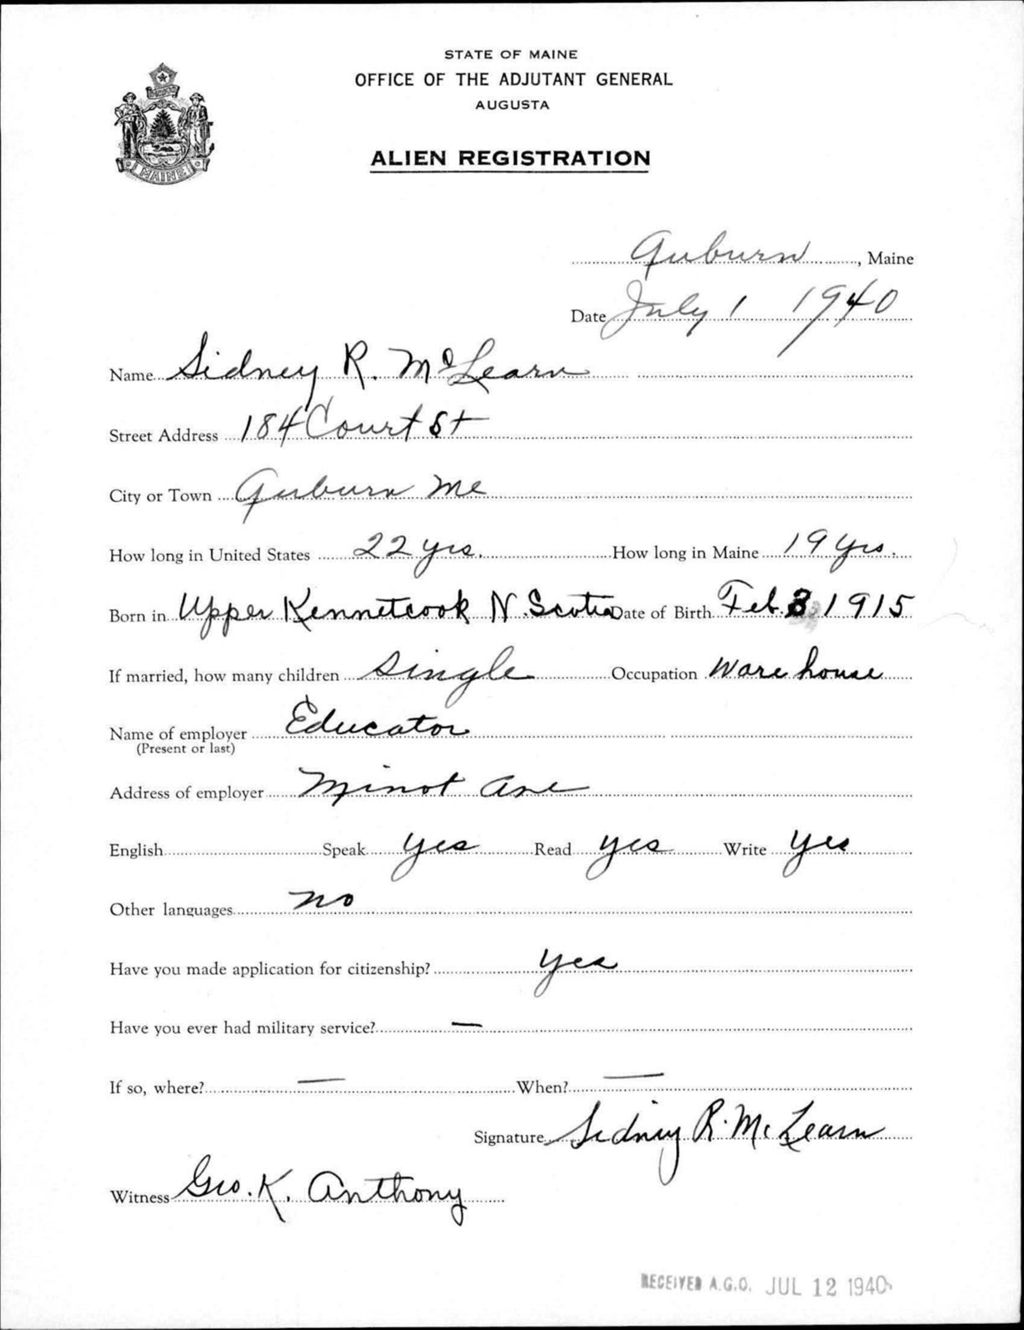 STATE OF MAINE
OFFICE OF THE ADJUTANT GENERAL
AUGUSTA
ALIEN REGISTRATION
MAINE
Auburn, Maine
Date July 1 1940
Name Sidney R. McLearn
Street Address 184 Court St
City or Town Auburn Me
How long in United States 22 yrs. How long in Maine 19 yrs.
Born in Upper Kennetcook N. Scotia Date of Birth Feb. 3, 1915
If married, how many children Single Occupation Warehouse
Name of employer Educator
(Present or last)
Address of employer Minot Ave
English Speak yes Read yes Write yes
Other languages no
Have you made application for citizenship? yes
Have you ever had military service? —
If so, where? — When? —
Signature Sidney R. McLearn
Witness Geo. K. Anthony
RECEIVED A.G.O. JUL 12 1940